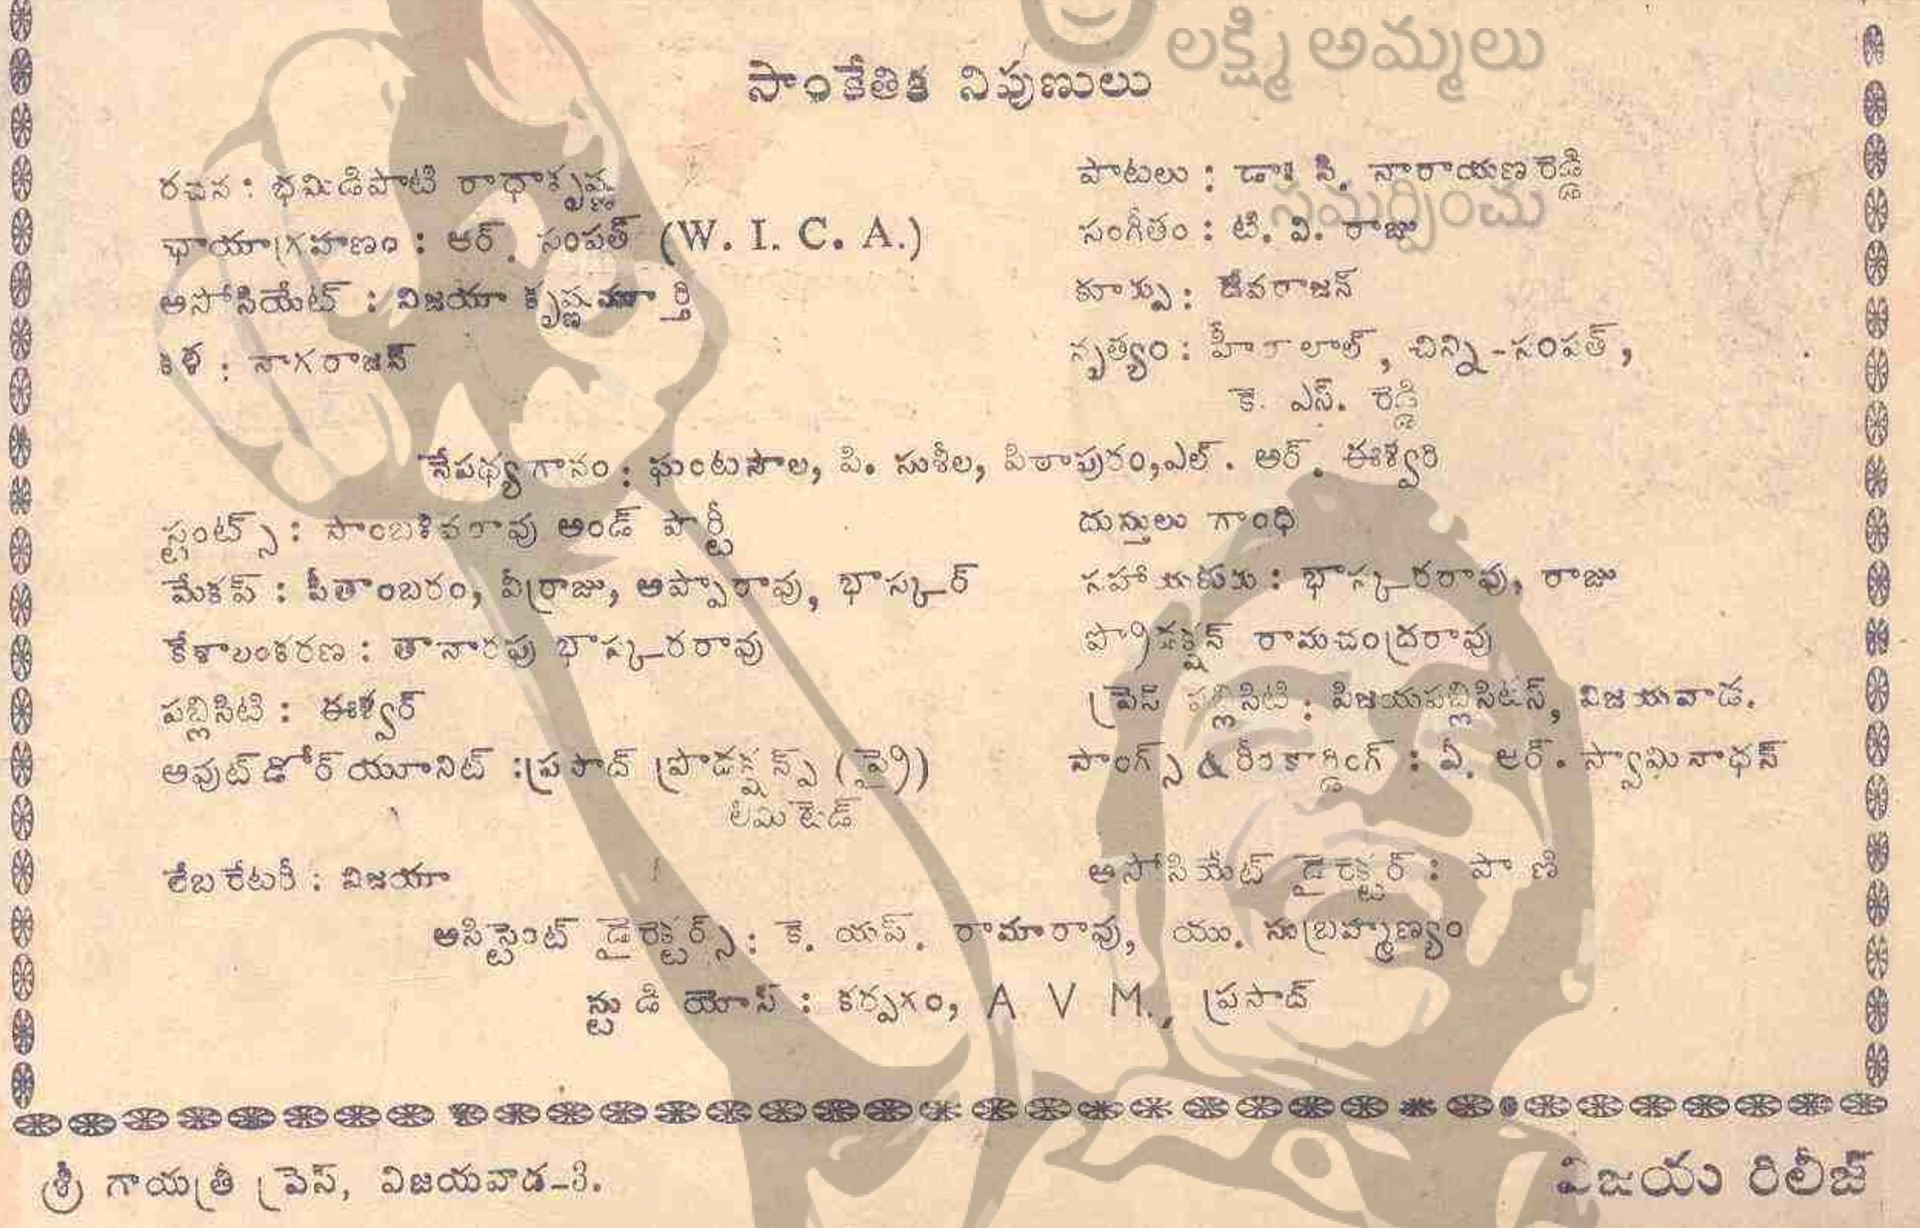 లక్ష్మి అమ్మలు
సాంకేతిక నిపుణులు
రచన : భమిడిపాటి రాధాకృష్ణ
ఛాయాగ్రహణం : ఆర్. సంపత్ (W. I. C. A.)
అసోసియేట్ : విజయా కృష్ణమూర్తి
కళ : నాగరాజన్
పాటలు : డా॥ సి. నారాయణరెడ్డి
సమర్పించు
సంగీతం : టి. వి. రాజు
కూర్పు : దేవరాజన్
నృత్యం : హీరాలాల్, చిన్ని-సంపత్,
కె. ఎస్. రెడ్డి
నేపథ్యగానం : ఘంటసాల, పి. సుశీల, పిఠాపురం, ఎల్. ఆర్. ఈశ్వరి
స్టంట్స్ : సాంబశివరావు అండ్ పార్టీ
మేకప్ : పీతాంబరం, వీర్రాజు, అప్పారావు, భాస్కర్
కేశాలంకరణ : తానారపు భాస్కరరావు
పబ్లిసిటి : ఈశ్వర్
అవుట్‌డోర్ యూనిట్ : ప్రసాద్ ప్రొడక్షన్స్ (ప్రై)
లిమిటెడ్
లేబరేటరీ : విజయా
దుస్తులు గాంధి
సహాయకుడు : భాస్కరరావు, రాజు
ప్రొడక్షన్ రామచంద్రరావు
ప్రెస్ పబ్లిసిటి : విజయపబ్లిసిటీస్, విజయవాడ.
సాంగ్స్ & రీరికార్డింగ్ : వీ. ఆర్. స్వామినాథన్
అసోసియేట్ డైరెక్టర్ : పాణి
అసిస్టెంట్ డైరెక్టర్స్ : కె. యస్. రామారావు, యు. సుబ్రహ్మణ్యం
స్టుడియోస్ : కర్పగం, A V M., ప్రసాద్
శ్రీ గాయత్రీ ప్రెస్, విజయవాడ-3.
విజయ రిలీజ్